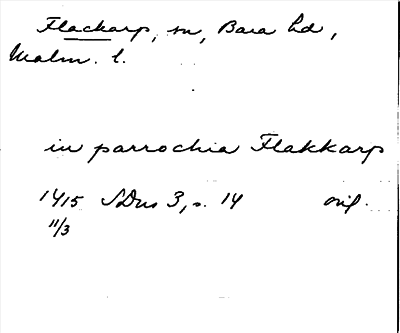 Flackarp, sn, Bara hd,
Malm. l.
in parrochia Flakkarp
1415 SDns 3, s. 14 orig.
11/3